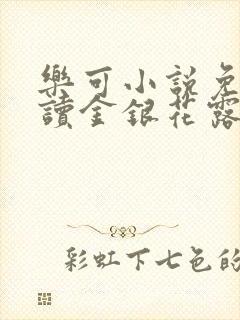 樂可小說免
讀金銀花露
彩虹下七色的